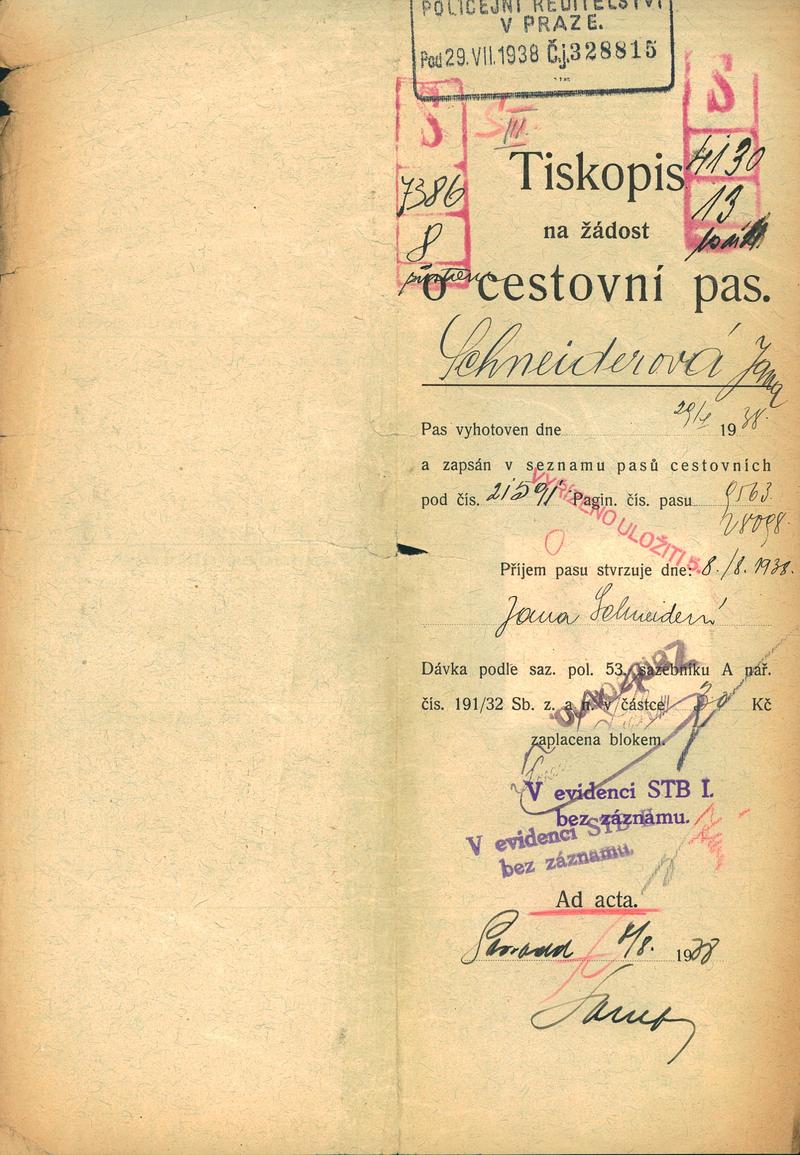 POLICEJNÍ ŘEDITELSTVÍ
V PRAZE.
Pod 29.VII.1938 Č.j. 328815
S
S
III.
7386
8
4130
13
Tiskopis
na žádost
o cestovní pas.
Schneiderová Jana
Pas vyhotoven dne 1938.
a zapsán v seznamu pasů cestovních
pod čís. 21591 Pagin. čís. pasu 9563
28098
VYŘÍZENO ULOŽITI 5.
Příjem pasu stvrzuje dne: 8./8. 1938.
Jana Schneiderová
Dávka podle saz. pol. 53. sazebníku A nař.
čís. 191/32 Sb. z. a n. v částce Kč
zaplacena blokem.
V evidenci STB I.
bez záznamu.
V evidenci STB
bez záznamu.
Ad acta.
8/8. 1938